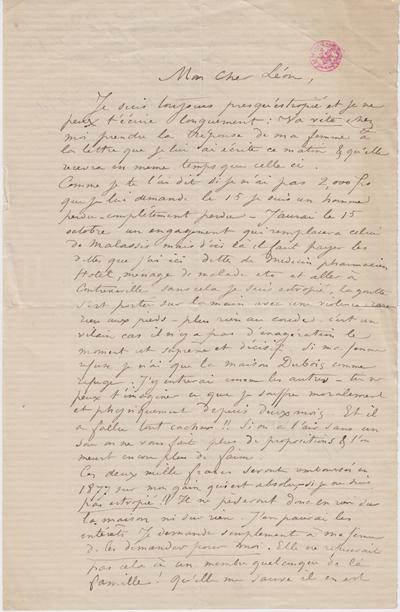 Mon cher Léon,
Je suis toujours presqu'estropié et je ne
peux t'écrire longuement : Va vite chez
moi prendre la réponse de ma femme à
la lettre que je lui ai écrite ce matin & qu'elle
recevra en même temps que celle ci.
Comme je te l'ai dit si je n'ai pas 2,000 fcs
que je lui demande le 15 je suis un homme
perdu - complètement perdu - J'aurai le 15
octobre un engagement qui remplacera celui
de Malassis mais d'ici là il faut payer les
dettes que j'ai ici dette de médecin pharmacien
Hotel, ménage de malade etc et aller à
Contrexeville sans cela je suis estropié, la goutte
s'est portée sur la main avec une violence rare
rien aux pieds - plus rien au coude. c'est un
vilain cas il n'y a pas d'exagération le
moment est suprême et décisif. Si ma femme
refuse je n'ai que la maison Dubois comme
refuge. J'y entrerai comme les autres - tu ne
peux t'imaginer ce que je souffre moralement
et physiquement depuis deux mois. Et il
a fallu tout cacher !! Si on a l'air sans un
sou on ne vous fait plus de propositions & l'on
meurt encore plus de faim.
Ces deux mille francs seront remboursés en
1877 sur mon gain, qui est absolu si je ne suis
pas estropié !! Ils ne pèseront donc en rien sur
la maison ni sur rien. J'en paierai les
intérêts. Je demande simplement à ma femme
de les demander pour moi. Elle ne refuserait
pas cela à un membre quelconque de la
famille ! qu'elle me sauve il en est